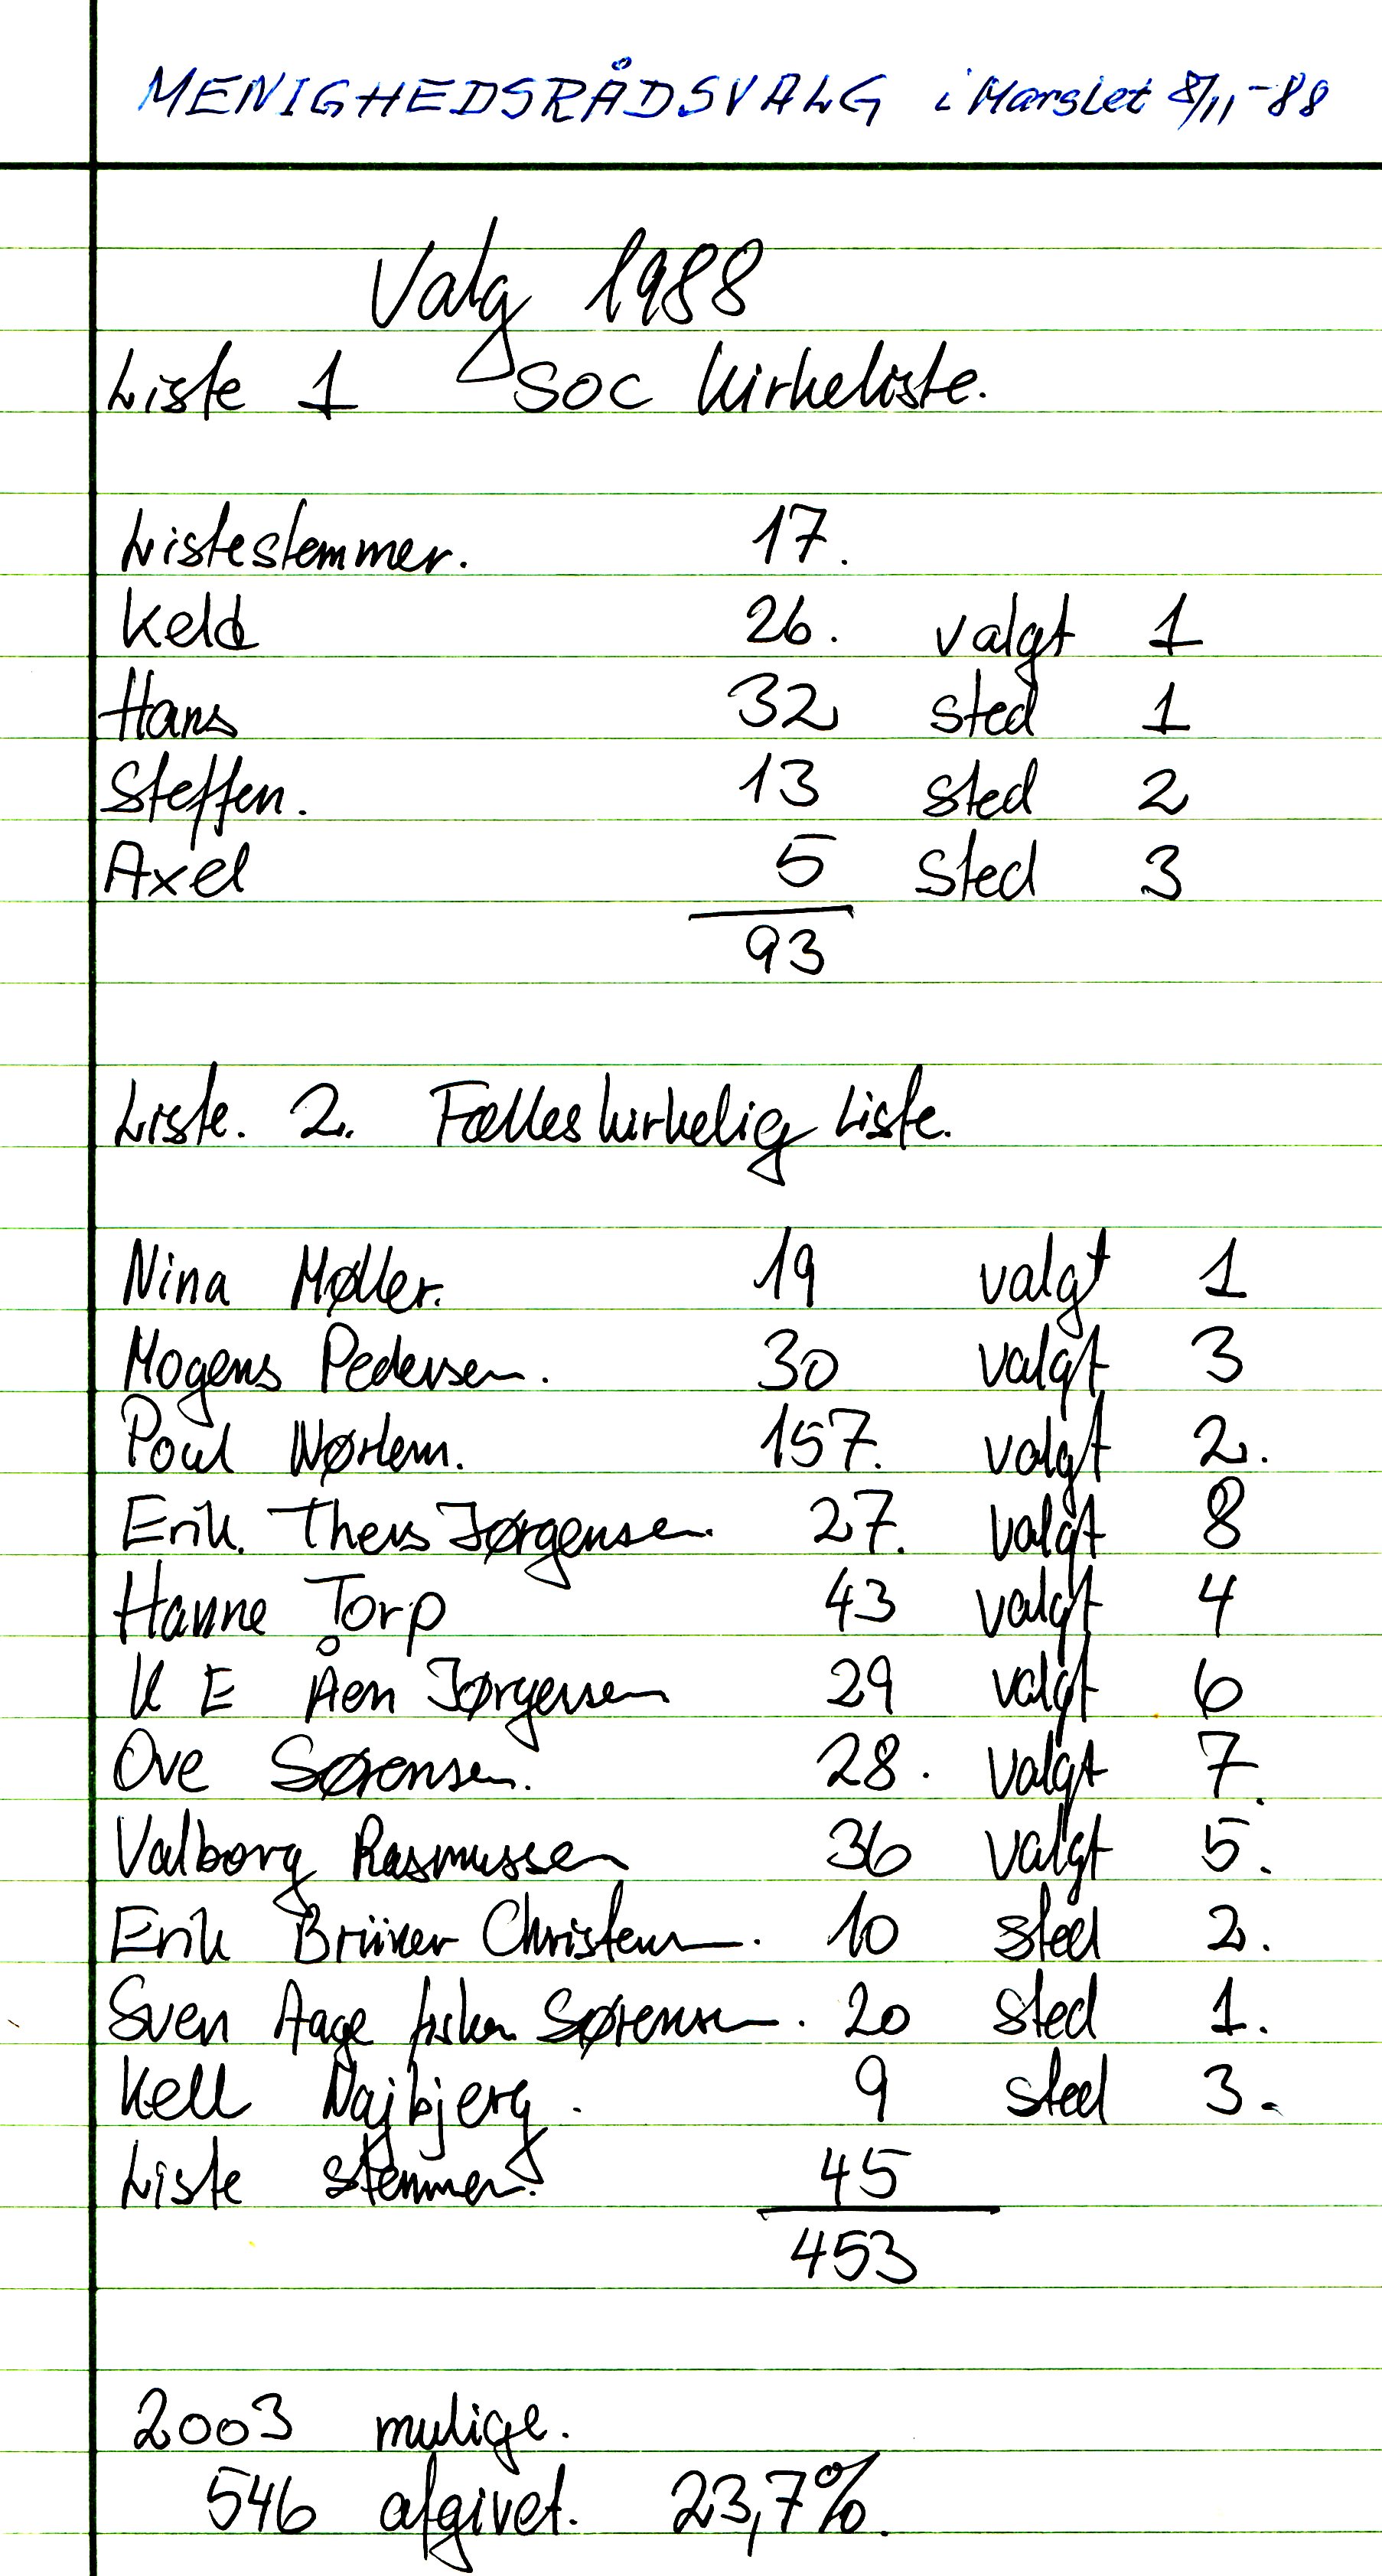 MENIGHEDSRÅDSVALG i Marslet 8/11-88
Valg 1988
Liste 1 Soc Kirkeliste.
Listestemmer. 17.
Keld 26. valgt 1
Hans 32 sted 1
Steffen. 13 sted 2
Axel 5 sted 3
93
Liste. 2. Fælleskirkelig Liste.
Nina Møller. 19 valgt 1
Mogens Pedersen. 30 valgt 3
Poul Nørlem. 157. valgt 2.
Erik. Theis Jørgensen. 27. valgt 8
Hanne Torp 43 valgt 4
K E Åen Jørgensen 29 valgt 6
Ove Sørensen. 28. valgt 7.
Valborg Rasmussen 36 valgt 5.
Erik Brüner Christensen. 10 sted 2.
Sven Aage Sørensen. 20 sted 1.
Kell Najbjerg. 9 sted 3.
Liste stemmer. 45
453
2003 mulige.
546 afgivet. 23,7%.